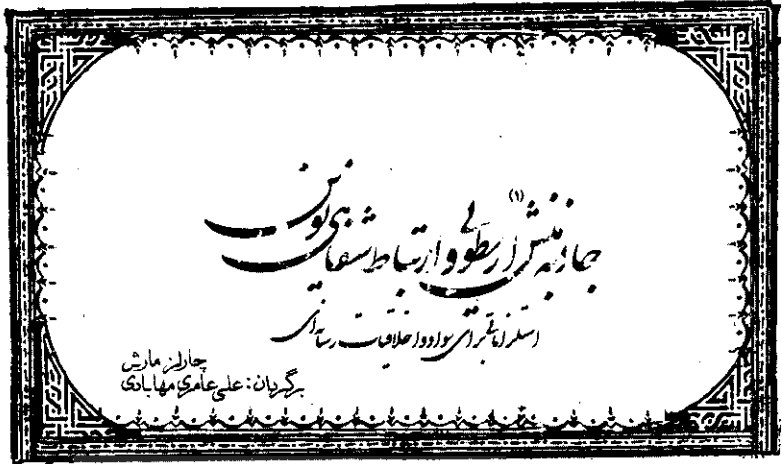 جاذبهٔ منش(۱) ارسطویی و ارتباط شفاهی نوین
استلزاماتی برای سواد و اخلاقیات رسانه‌ای
چارلز مارش
برگردان: علی عامری مهابادی